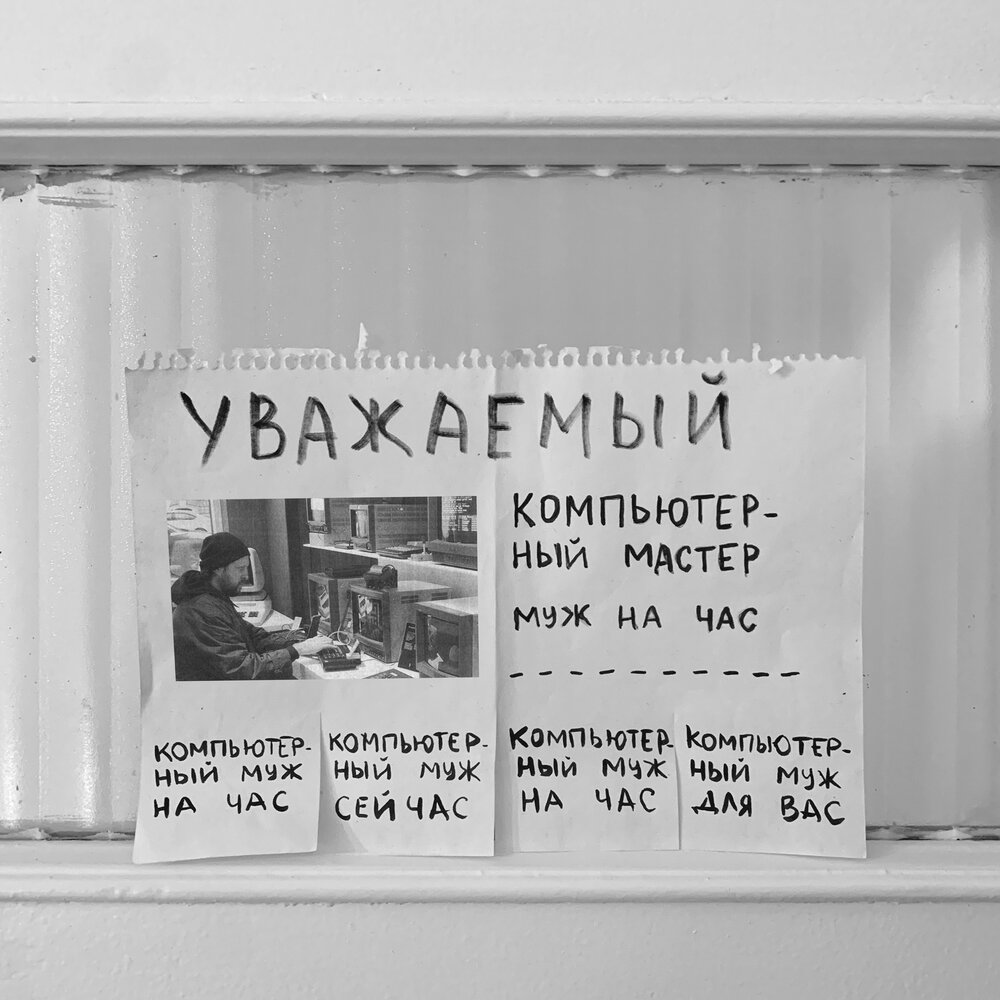 УВАЖАЕМЫЙ
КОМПЬЮТЕР-
НЫЙ МАСТЕР
МУЖ НА ЧАС
КОМПЬЮТЕР-
НЫЙ МУЖ
НА ЧАС
КОМПЬЮТЕР-
НЫЙ МУЖ
СЕЙЧАС
КОМПЬЮТЕР-
НЫЙ МУЖ
НА ЧАС
КОМПЬЮТЕР-
НЫЙ МУЖ
ДЛЯ ВАС